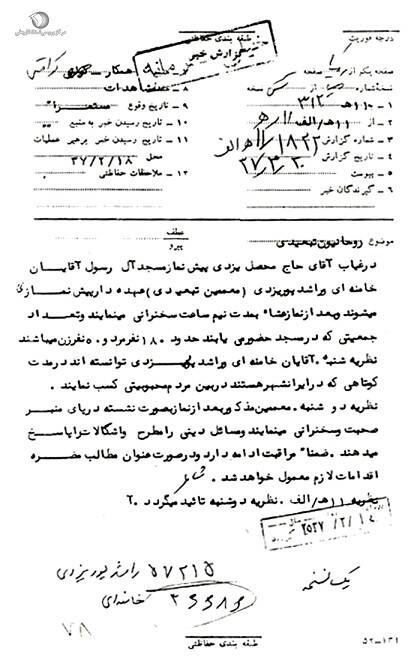 طبقه بندی حفاظتی
گزارش خبر
درجه فوریت
صفحه یکم از صفحه
نسخه شماره از نسخه
۱ـ به ۳۱۲
۲ـ از ۱۱هـ/الف
۳ـ شماره گزارش
۴ـ تاریخ گزارش
۵ـ پیوست
۶ـ گیرندگان خبر
همکار ـ
۸ـ مشاهدات
۹ـ تاریخ وقوع
۱۰ـ تاریخ رسیدن خبر به منبع
۱۱ـ تاریخ رسیدن خبر برهبر عملیات
محل ۳۷/۲/۱۸
۱۲ـ ملاحظات حفاظتی
موضوع روحانیون تبعیدی
عطف
پیرو
در غیاب آقای حاج محصل یزدی پیش نماز مسجد آل رسول آقایان
خامنه ای و راشد پور یزدی (معممین تبعیدی) عهده دار پیش نمازی
میشوند و بعد از نماز عشاء بمدت نیم ساعت سخنرانی مینمایند و تعداد
جمعیتی که در مسجد حضور می یابند حدود ۱۸۰ نفر مرد و ۵۰ نفر زن میباشند
نظریه شنبه. آقایان خامنه ای و راشد پور یزدی توانسته اند در مدت
کوتاهی که در ایرانشهر هستند در بین مردم محبوبیتی کسب نمایند.
نظریه دو شنبه. معممین مذکور بعد از نماز بصورت نشسته در پای منبر
صحبت و سخنرانی مینمایند و مسائل دینی را مطرح و اشکالات را پاسخ
میدهند. ضمناً مراقبت ادامه دارد و در صورت عنوان مطالب مضره
اقدامات لازم معمول خواهد شد.
نظریه ۱۱هـ/الف. نظریه دوشنبه تائید میگردد.
۲۵۳۷/۲/
یک نسخه
راشد پور یزدی ۵۷۲۱۵
خامنه ای
۷۸
طبقه بندی حفاظتی
۵۲ـ۱۲۱